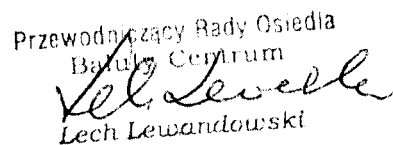 Przewodniczący Rady Osiedla
Bałuty Centrum
Lech Lewandowski